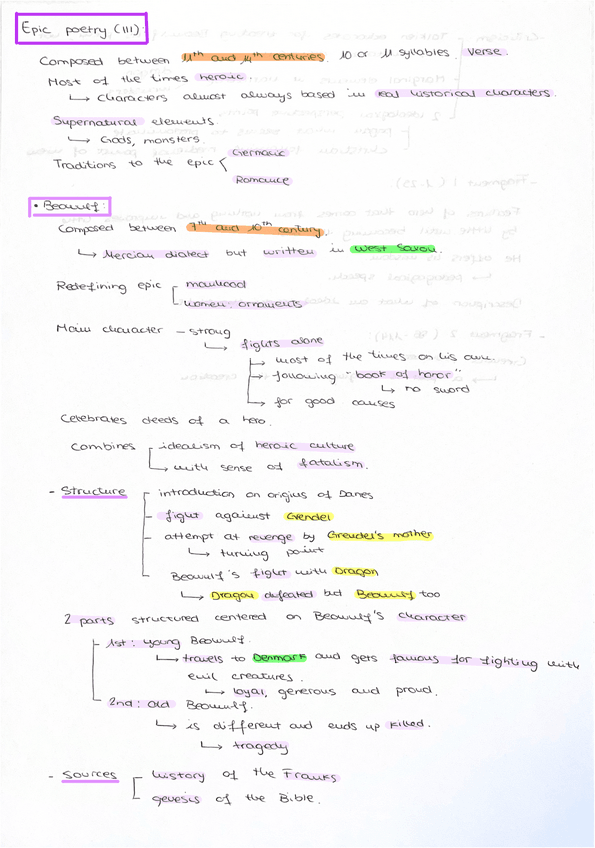 Epic poetry (III):
Composed between 11th and 14th centuries. 10 or 11 syllables. Verse.
Most of the times heroic.
↳ Characters almost always based in real historical characters.
Supernatural elements.
↳ Gods, monsters.
Germanic
Traditions to the epic
Romance
• Beowulf:
Composed between 7th and 10th century.
↳ Mercian dialect but written in West Saxon.
Redefining epic manhood
women: ornaments
Main character - strong
↳ fights alone
→ most of the times on his own.
→ following "book of honor"
↳ no sword
↳ for good causes
Celebrates deeds of a hero.
Combines idealism of heroic culture
↳ with sense of fatalism.
- Structure introduction on origins of Danes
fight against Grendel
attempt at revenge by Grendel's mother
↳ turning point
Beowulf's fight with Dragon
↳ Dragon defeated but Beowulf too
2 parts structured centered on Beowulf's character
1st: young Beowulf.
↳ travels to Denmark and gets famous for fighting with
evil creatures.
↳ loyal, generous and proud.
2nd: old Beowulf.
↳ is different and ends up killed.
↳ tragedy
- Sources history of the Franks
genesis of the Bible.